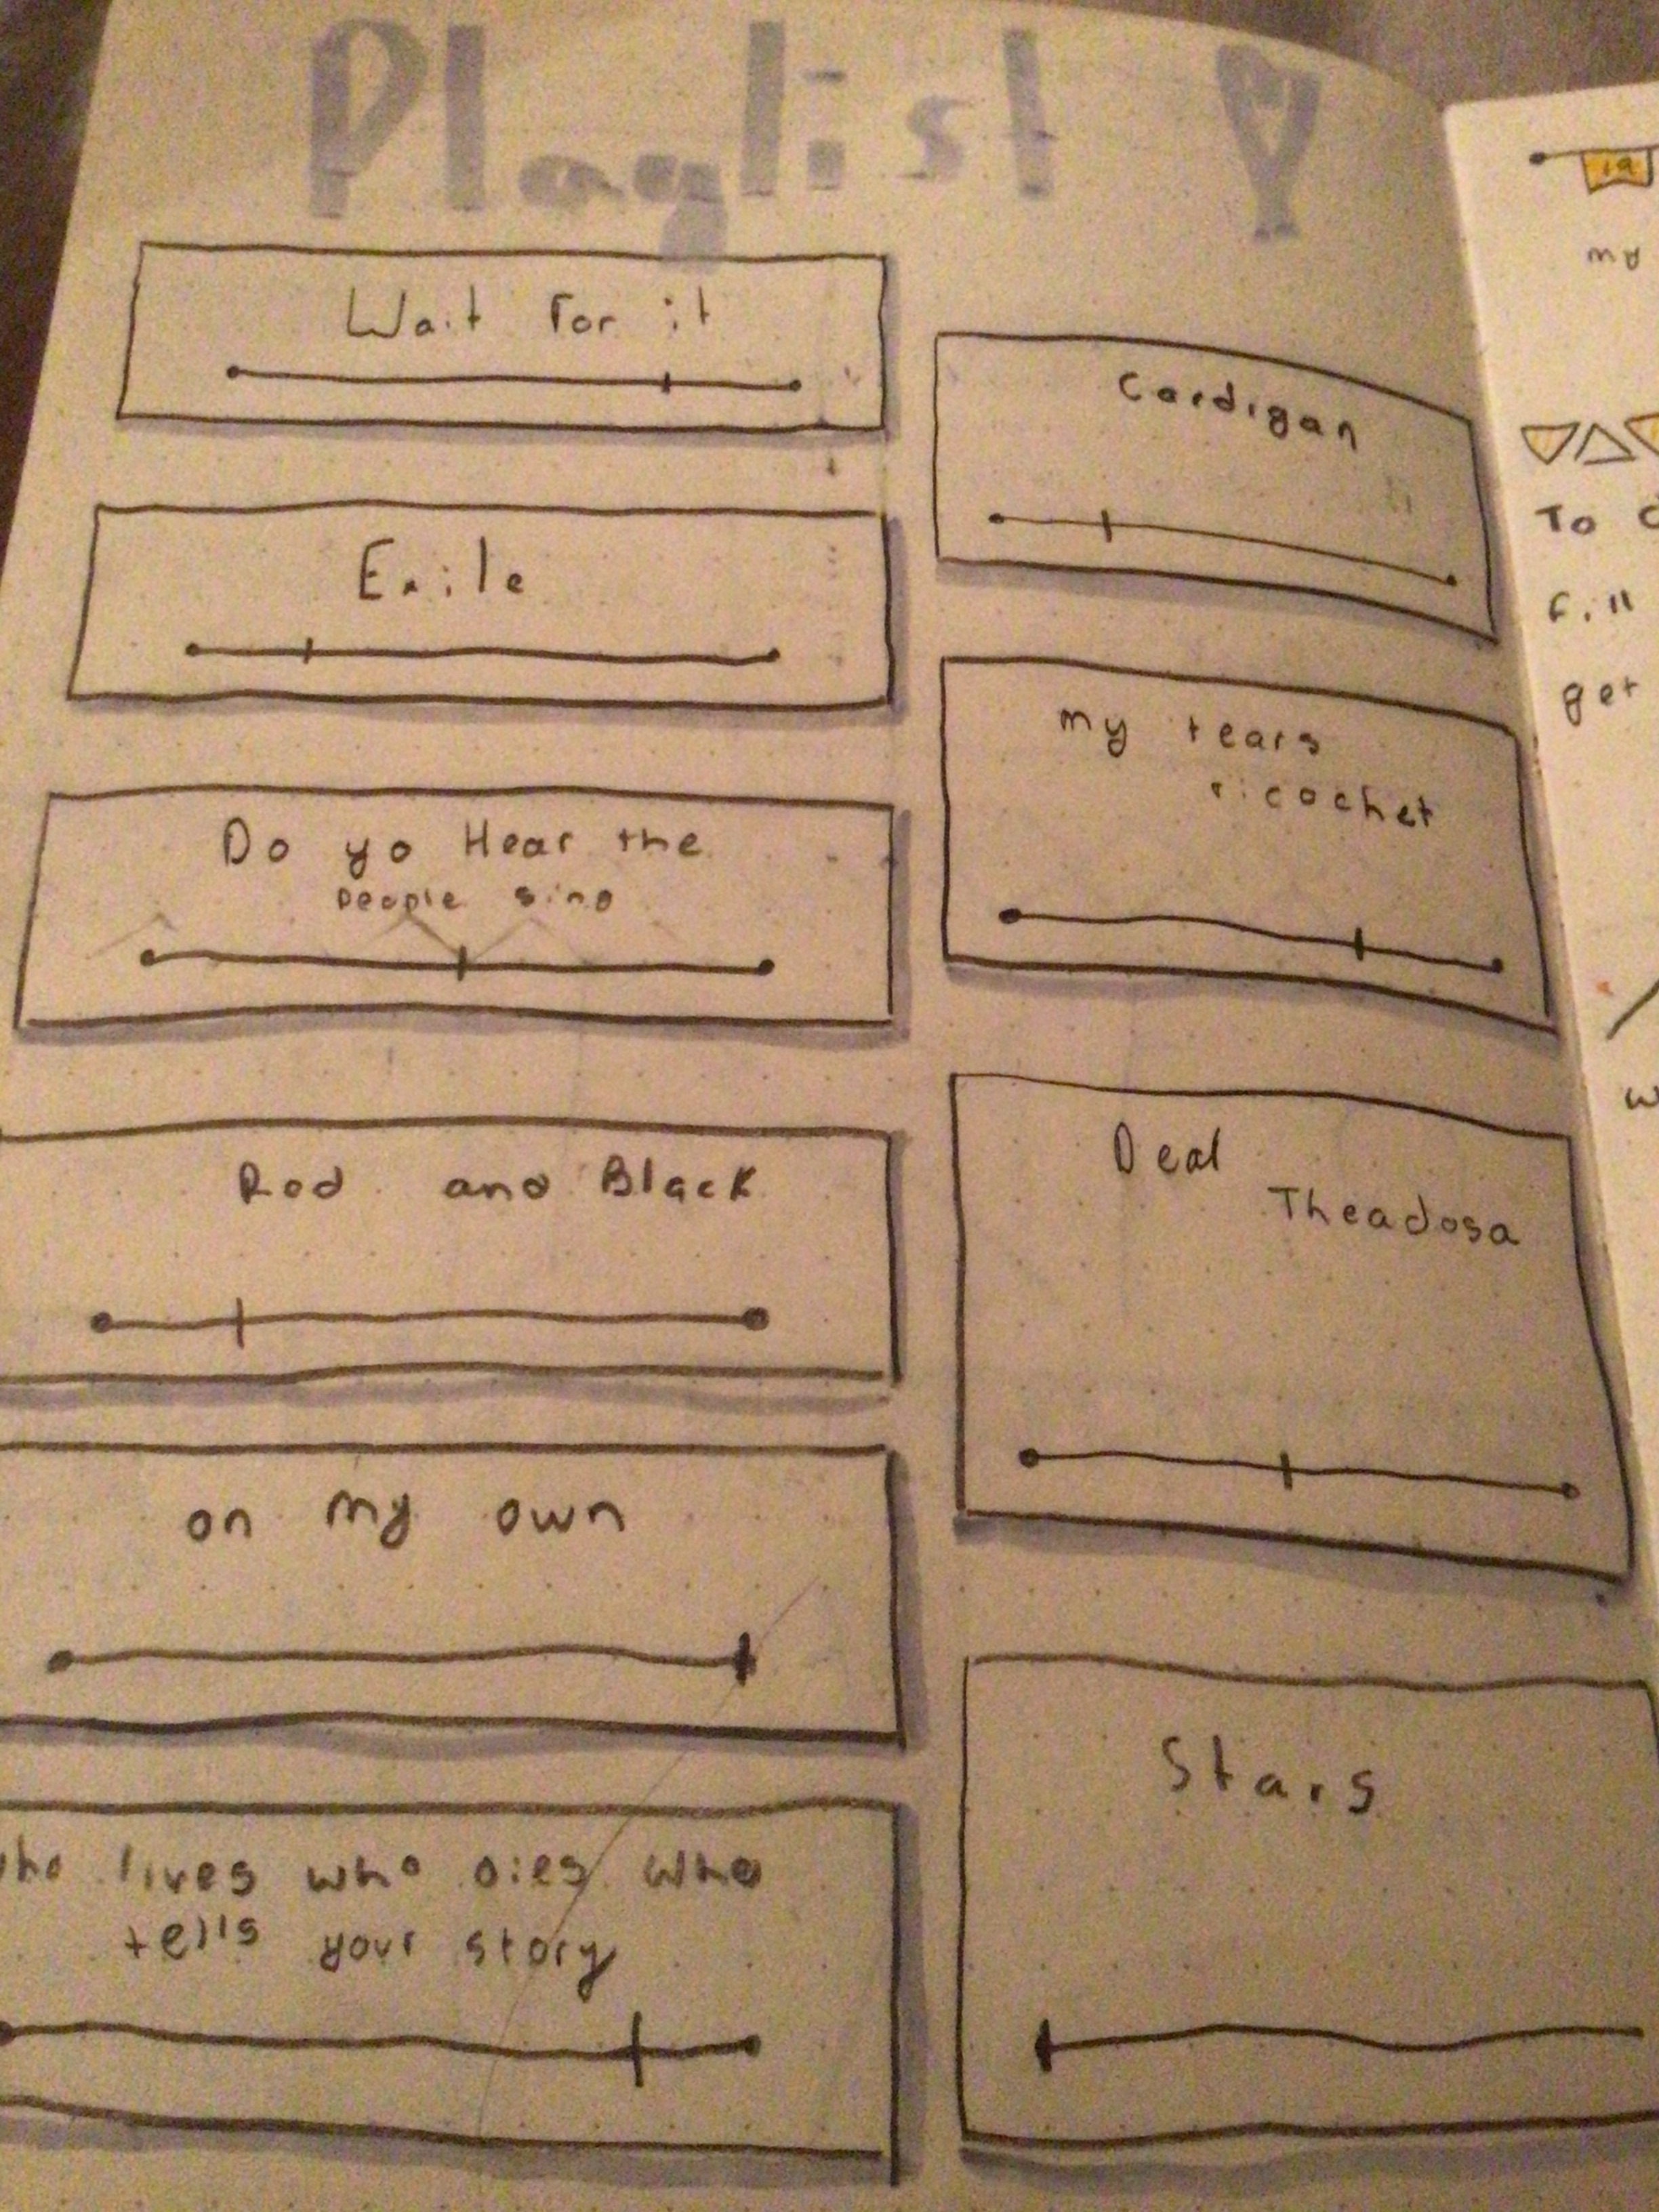 Playlist
Wait For it
Exile
Do yo Hear the
people sing
Red and Black
on my own
who lives who dies who
tells your story
Cardigan
my tears
ricochet
Dear
Theadosa
Stars
19
my
To
fill
get